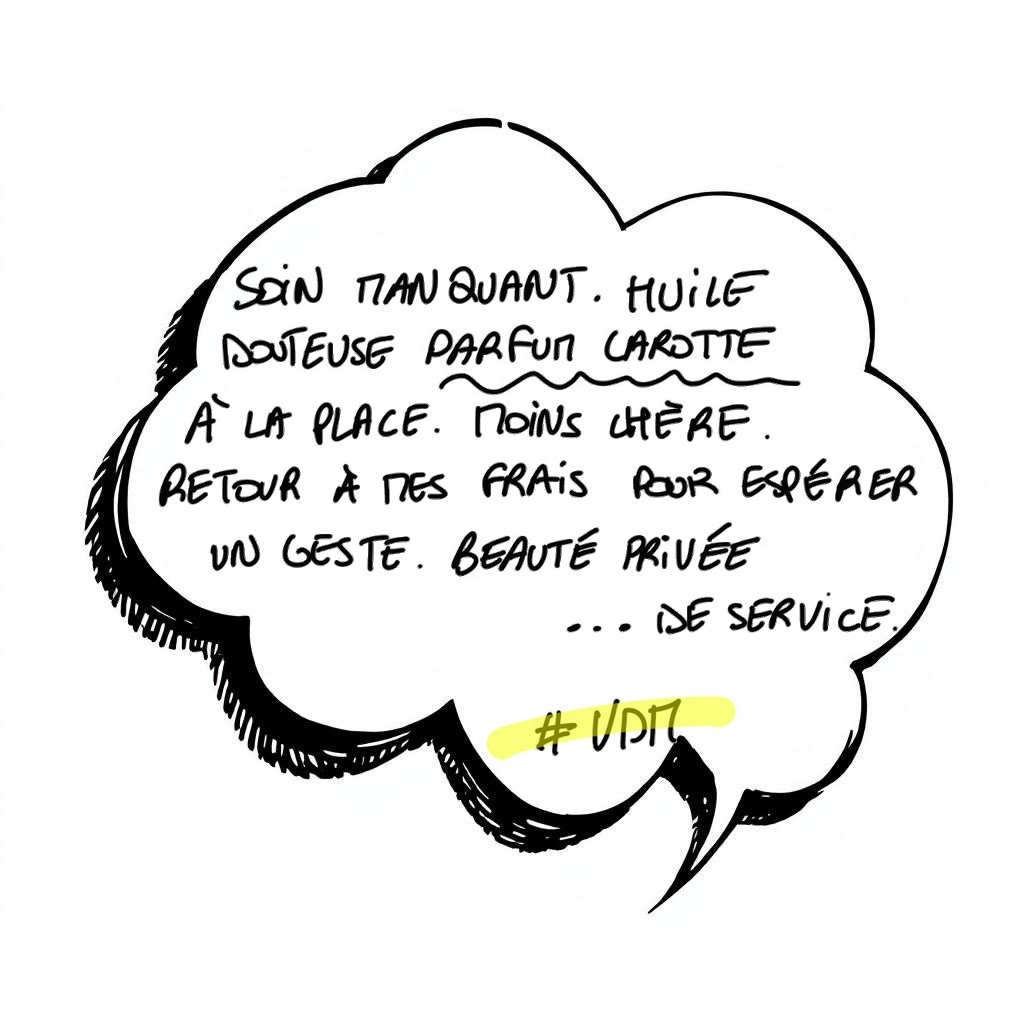 SOIN MANQUANT. HUILE
DOUTEUSE PARFUM CAROTTE
À LA PLACE. MOINS CHÈRE.
RETOUR À MES FRAIS POUR ESPÉRER
UN GESTE. BEAUTÉ PRIVÉE
... DE SERVICE.
# VDM